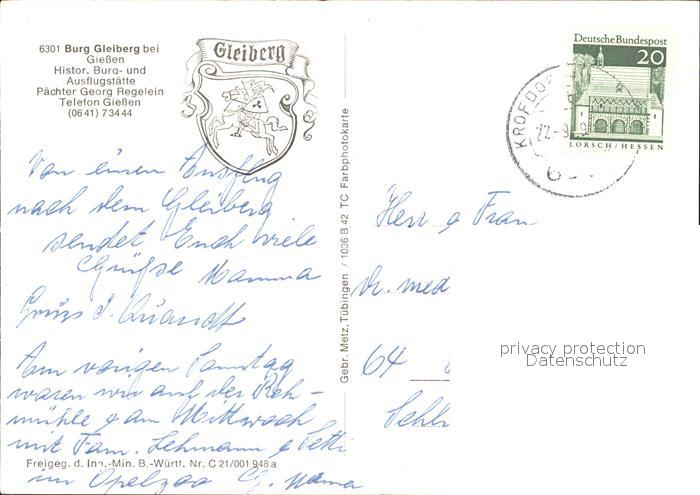 6301 Burg Gleiberg bei
Gießen
Histor. Burg- und
Ausflugstätte
Pächter Georg Regelein
Telefon Gießen
(0641) 73444
Gleiberg
Von einen Ausflug
nach dem Gleiberg
sendet Euch viele
Grüße Mamma
Gruss I. Quandt
Am vorigen Samstag
waren wir auf der Reh-
mühle & am Mittwoch
mit Fam. Lehmann &
im Opelzoo Gr. Mama
Freigeg. d. Inn.-Min. B.-Württ. Nr. C 21/001 948 a
Gebr. Metz, Tübingen / 1036 B 42 TC Farbphotokarte
Deutsche Bundespost
20
LORSCH/HESSEN
KROFDO
22.-9.
Herr & Frau
Dr. med
64
privacy protection
Datenschutz